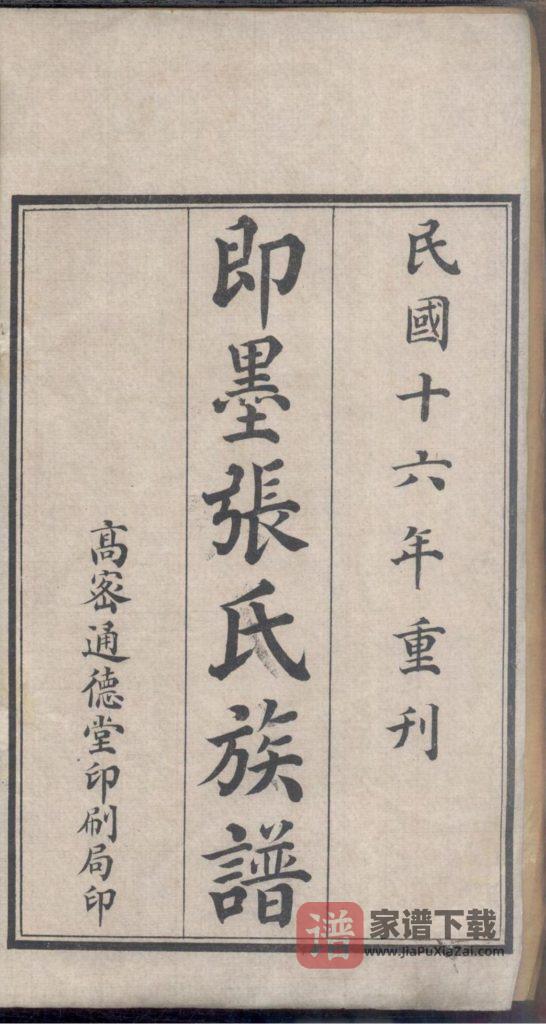 民國十六年重刊
即墨張氏族譜
高密通德堂印刷局印
谱
家谱下载
www.JiaPuXiaZai.com